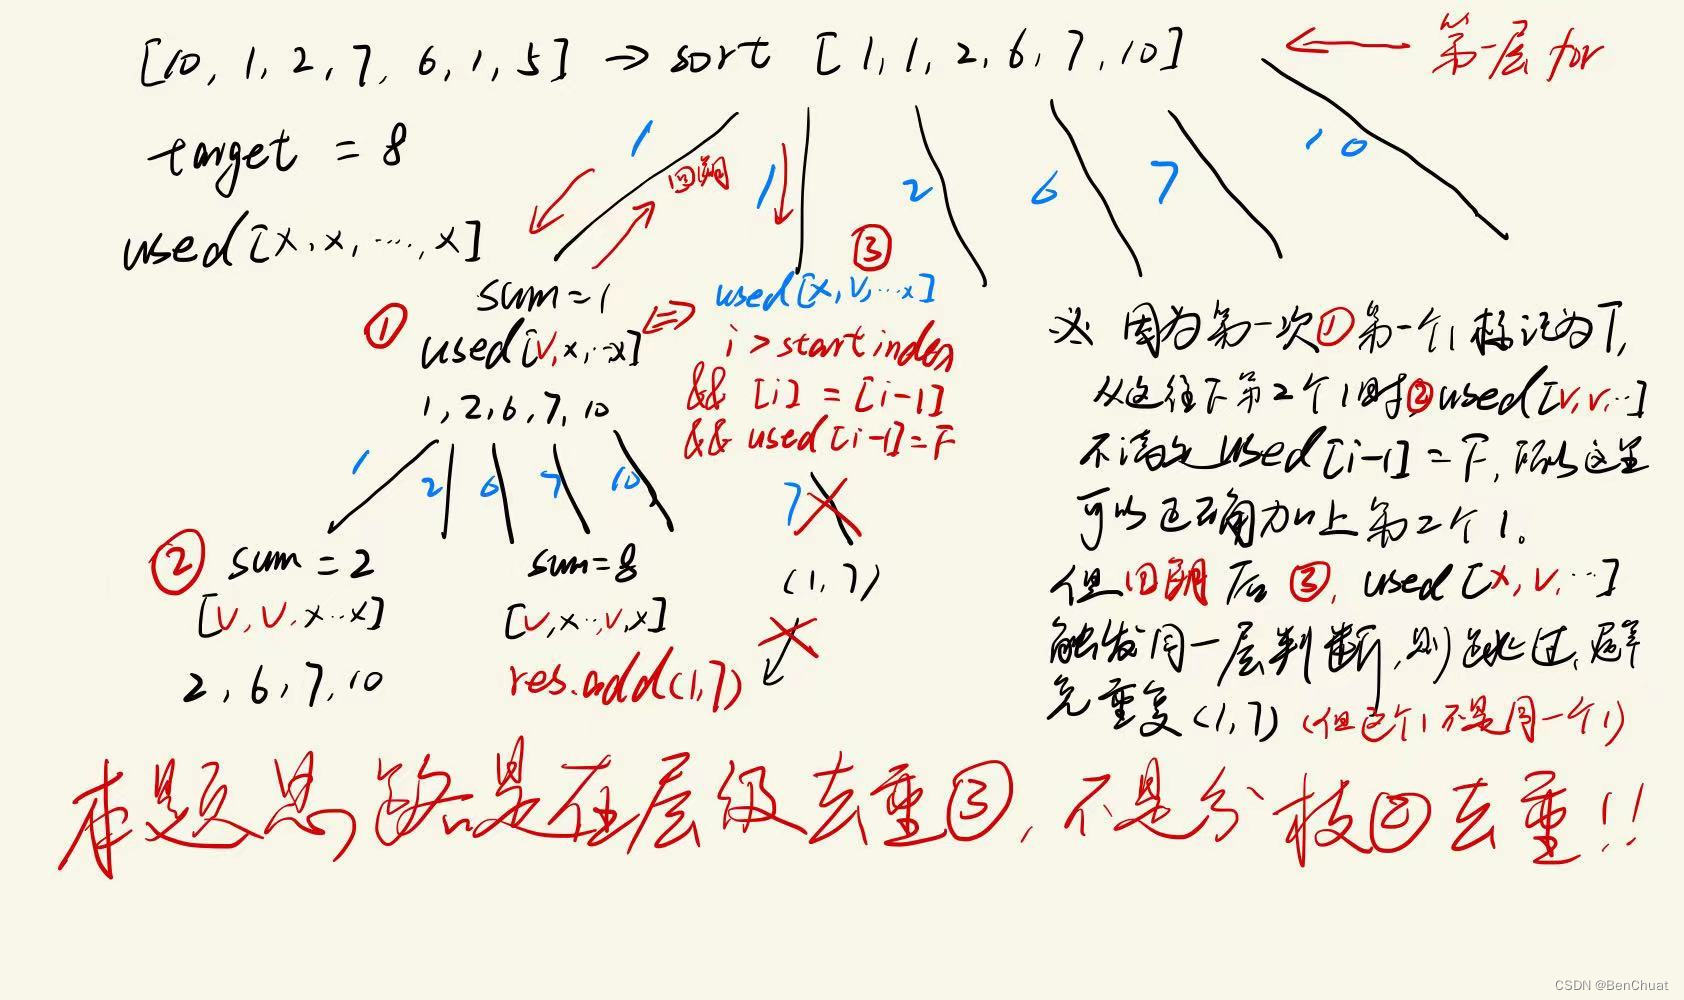 [10, 1, 2, 7, 6, 1, 5] → sort [1, 1, 2, 6, 7, 10] ← 第一层 for
target = 8
1 1 2 6 7 10
回溯
used[x, x, ···, x]
③
sum=1
used[x, v, ··x]
① used[v, x, ··x] ⇔ i > startindex
1, 2, 6, 7, 10
&& [i] = [i-1]
&& used[i-1]=F
1 2 6 7 10
7
② sum = 2
[v, v, x··x]
2, 6, 7, 10
sum=8
[v, x··, v, x]
res.add(1,7)
(1, 7)
因为第一次①第一个1标记为T,
从这往下第2个1时,②used[v, v, ··]
不满足used[i-1] = F, 所以这里
可以正确加上第2个1。
但回溯后③, used[x, v, ··]
触发同一层判断, 则跳过, 避
免重复(1,7) (但这个1不是同一个1)
本题思路是在层级去重③, 不是分枝②去重!!
CSDN @BenChuat